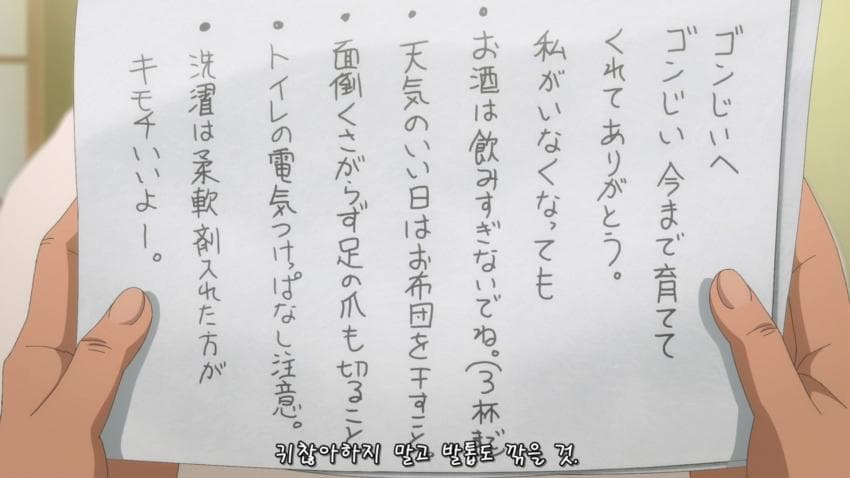 ゴンじいへ
ゴンじい 今まで育てて
くれてありがとう。
私がいなくなっても
・お酒は飲みすぎないでね。(3杯まで
・天気のいい日はお布団を干すこと
・面倒くさがらず足の爪も切ること
・トイレの電気つけっぱなし注意。
・洗濯は柔軟剤入れた方が
キモチいいよー。
귀찮아하지 말고 발톱도 깎을 것.